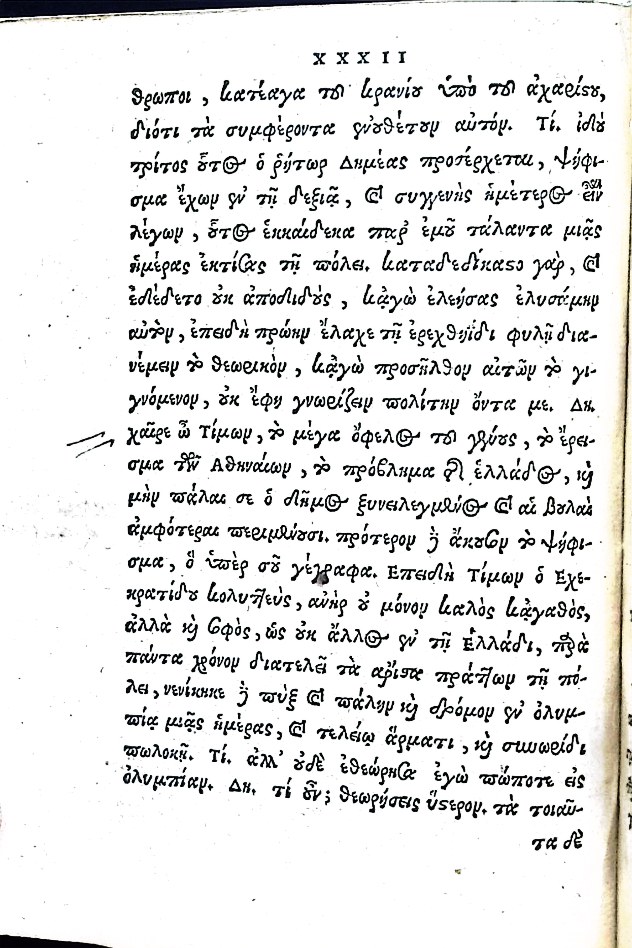 XXXII
θρωποι, κατέαγα τοῦ κρανίου ὑπὸ τοῦ ἀχαρίστου,
διότι τὰ συμφέροντα ἐνουθέτουν αὐτόν. Τί. ἰδοὺ
τρίτος οὗτος ὁ ῥήτωρ Δημέας προσέρχεται, ψήφι-
σμα ἔχων ἐν τῇ δεξιᾷ, καὶ συγγενὴς ἡμέτερος εἶναι
λέγων, οὗτος ἑκκαίδεκα παρ' ἐμοῦ τάλαντα μιᾶς
ἡμέρας ἐκτίσας τῇ πόλει. καταδεδίκαστο γὰρ, καὶ
ἐδέδετο οὐκ ἀποδιδοὺς, κἀγὼ ἐλεήσας ἐλυσάμην
αὐτὸν, ἐπειδὴ πρώην ἔλαχε τῇ ἐρεχθηΐδι φυλῇ δια-
νέμειν τὸ θεωρικὸν, κἀγὼ προσῆλθον αἰτῶν τὸ γι-
γνόμενον, οὐκ ἔφη γνωρίζειν πολίτην ὄντα με. Δη.
χαῖρε ὦ Τίμων, τὸ μέγα ὄφελος τοῦ γένους, τὸ ἔρει-
σμα τῶν Ἀθηναίων, τὸ πρόβλημα τῆς ἑλλάδος, καὶ
μὴν πάλαι σε ὁ δῆμος ξυνειλεγμένος καὶ αἱ βουλαὶ
ἀμφότεραι περιμένουσι. πρότερον δὲ ἄκουσον τὸ ψήφι-
σμα, ὃ ὑπὲρ σοῦ γέγραφα. Επειδὴ Τίμων ὁ Εχε-
κρατίδου κολυττεὺς, ἀνὴρ οὐ μόνον καλὸς κἀγαθὸς,
ἀλλὰ καὶ σοφὸς, ὡς οὐκ ἄλλος ἐν τῇ Ἑλλάδι, παρὰ
πάντα χρόνον διατελεῖ τὰ ἄριστα πράττων τῇ πό-
λει, νενίκηκε δὲ πὺξ καὶ πάλην καὶ δρόμον ἐν ὀλυμ-
πίᾳ μιᾶς ἡμέρας, καὶ τελείῳ ἅρματι, καὶ συνωρίδι
πωλικῇ. Τί. ἀλλ' οὐδὲ ἐθεώρησα ἐγὼ πώποτε εἰς
ὀλυμπίαν. Δη. τί οὖν; θεωρήσεις ὕστερον. τὰ τοιαῦ-
τα δὲ